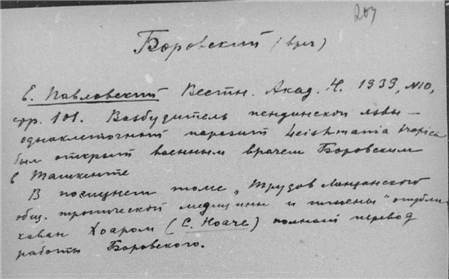 207
Боровский (врач)
Е. Павловский Вестн. Акад. Н. 1939, N10,
стр. 101. Возбудитель пендинской язвы —
одноклеточный паразит Leishmania tropica
был открыт военным врачем Боровским
в Ташкенте
В последнем томе „Трудов Лондонского
общ. тропической медицины и гигиены" опубли-
кован Хоаром (C. Hoare) полный перевод
работы Боровского.